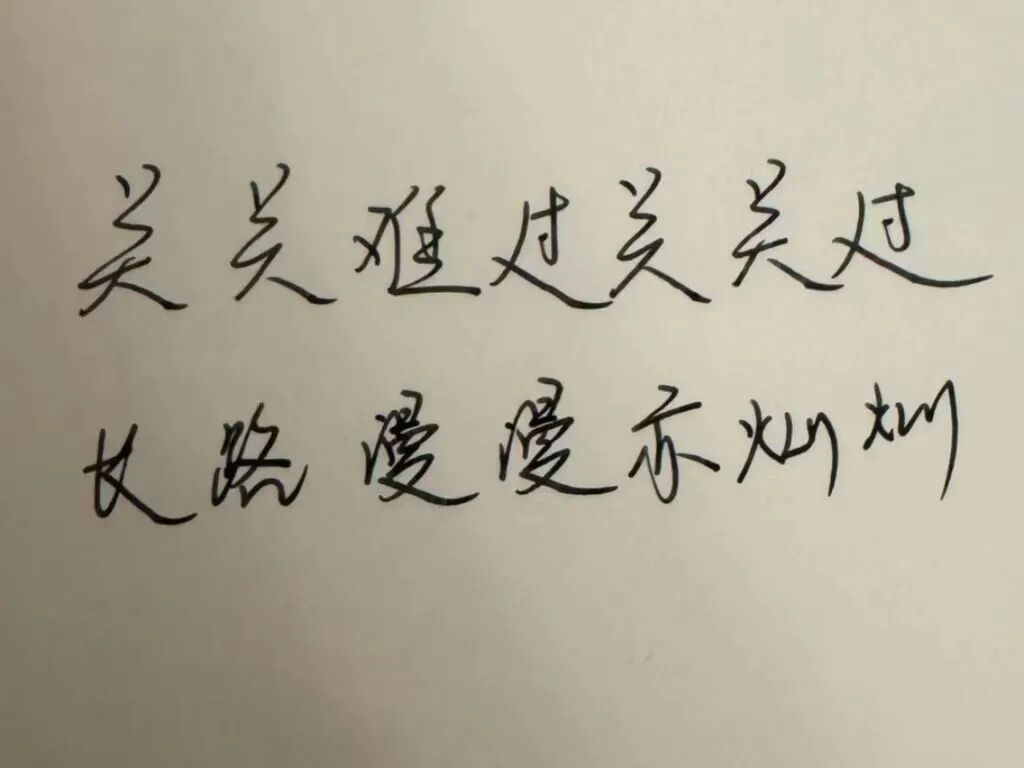 关关难过关关过
长路漫漫亦灿灿